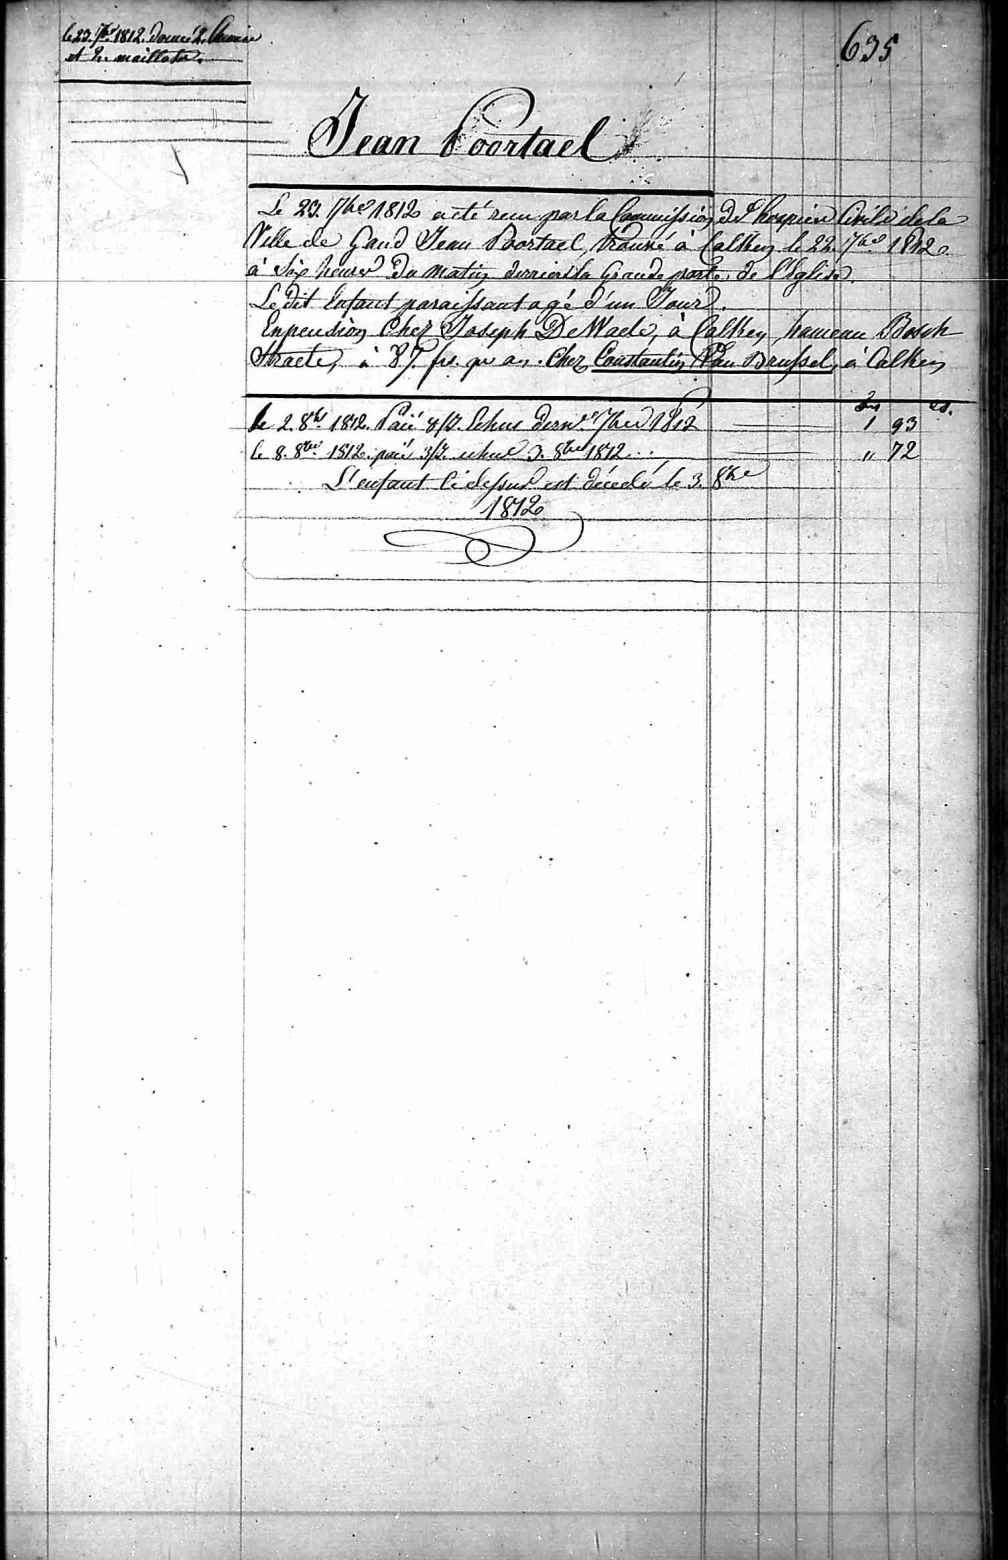 le 23. 7bre 1812. donné 2. Chemise
et 2. maillots.
635
Jean Poortael
Le 23. 7bre 1812 a été reçu par la Commission d. l'hospices Civils de la
Ville de Gand Jean Poortael, trouvé à Calken le 22. 7bre 1812.
à Six heures du matin derriere la Grande porte de l'Eglise.
Le dit Enfant paraissant agé d'un Jour.
En pension Chez Joseph De Waele, à Calken, hameau Bosch
Straete, à 87. frs. pr an. Chez Constantin Van Brussel, à Calken
frs cs.
le 2. 8bre 1812. Paié 8/J. Echus dernr. 7bre 1812 1 93
le 8. 8bre 1812. paié 3/J. echus 3. 8bre 1812 .. " 72
L'enfant ci dessus est décédé le 3. 8bre
1812